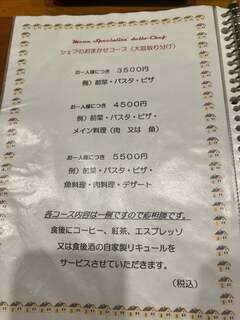 Menu Specialita' dello Chef
シェフのおまかせコース（大皿取り分け）
お一人様につき 3500円
例）前菜・パスタ・ピザ
お一人様につき 4500円
例）前菜・パスタ・ピザ・
メイン料理（肉 又は 魚）
お一人様につき 5500円
例）前菜・パスタ・ピザ・
魚料理・肉料理・デザート
各コース内容は一例ですので応相談です。
食後にコーヒー、紅茶、エスプレッソ
又は食後酒の自家製リキュールを
サービスさせていただきます。
（税込）